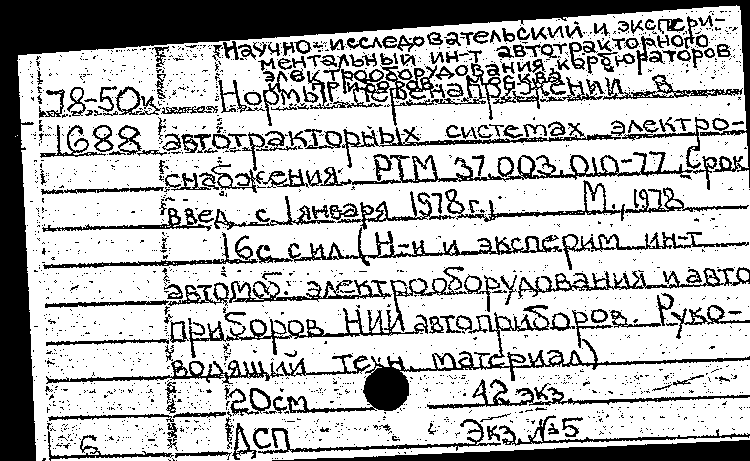 Научно-исследовательский и экспери-
ментальный ин-т автотракторного
электрооборудования карбюраторов
и приборов. Москва
78-50к Нормы перенапряжений в
1688 автотракторных системах электро-
снабжения. РТМ 37.003.010-77. Срок
введ. с 1 января 1978 г. М., 1978
16с с ил (Н-и и эксперим ин-т
автомоб. электрооборудования и авто
приборов. НИИавтоприборов. Руко-
водящий техн. материал)
20см 42 экз
6 ДСП Экз. №5